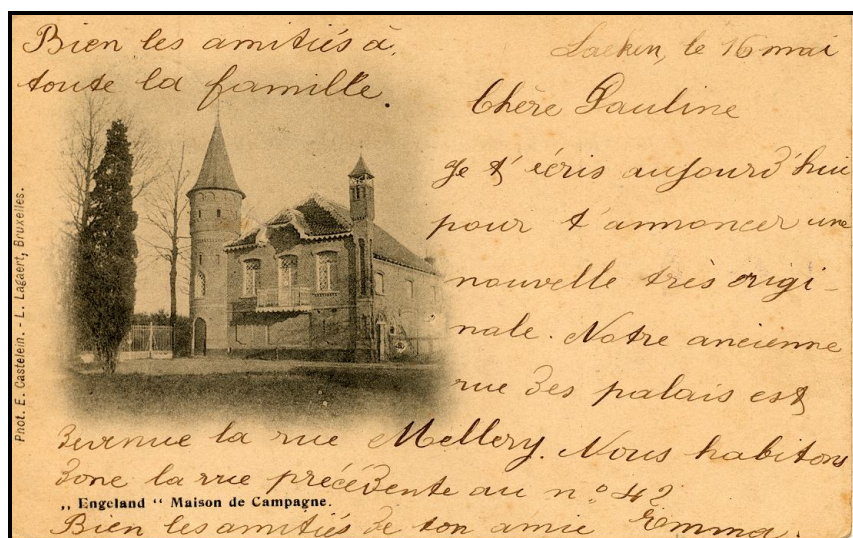 Bien les amitiés à
toute la famille.
Laeken, le 16 mai
Chère Pauline
Je t'écris aujourd'hui
pour t'annoncer une
nouvelle très origi-
nale. Notre ancienne
rue des palais est
devenue la rue Mellery. Nous habitons
donc la rue précédente au n° 42
Bien les amitiés de ton amie Emma.
„ Engeland “ Maison de Campagne.
Phot. E. Castelein. - L. Lagaert, Bruxelles.